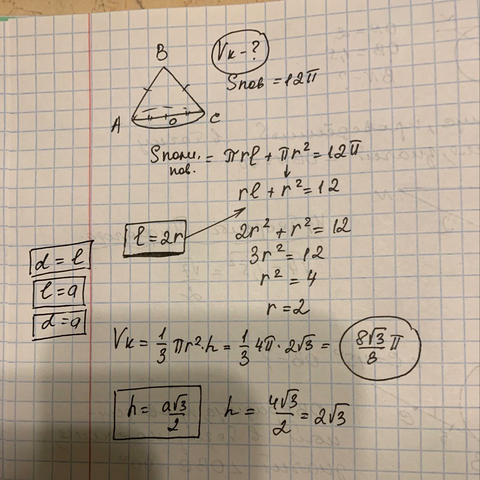 B
Vк - ?
Sпов = 12π
A O C
Sполн. пов. = πrl + πr² = 12π
rl + r² = 12
l = 2r
2r² + r² = 12
3r² = 12
r² = 4
r = 2
d = l
l = a
d = a
Vк = 1/3 πr²·h = 1/3 4π · 2√3 = 8√3/3 π
h = a√3/2
h = 4√3/2 = 2√3